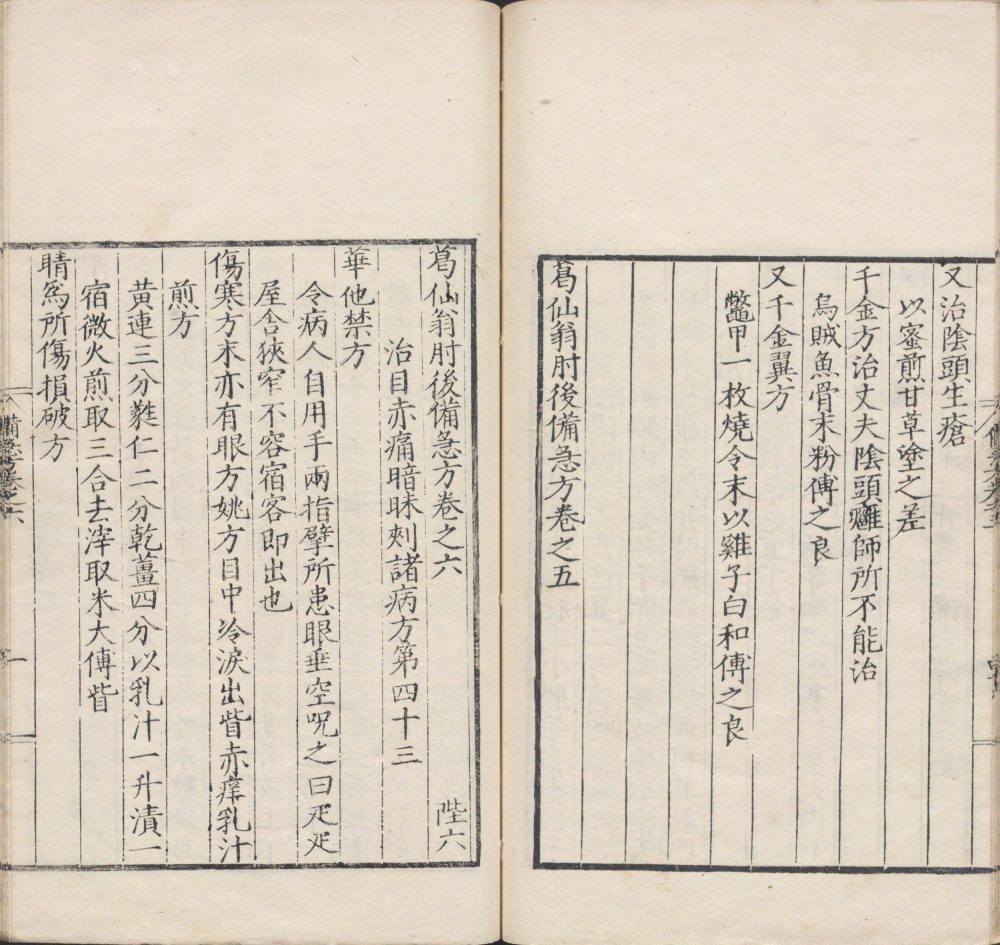 又治陰頭生瘡
以蜜煎甘草塗之差
千金方治丈夫陰頭癰師所不能治
烏賊魚骨末粉傅之良
又千金翼方
鼈甲一枚燒令末以雞子白和傅之良
葛仙翁肘後備急方卷之五
葛仙翁肘後備急方卷之六
陛六
治目赤痛暗昧刾諸病方第四十三
華他禁方
令病人自用手兩指擘所患眼垂空呪之曰疋疋
屋舎狹窄不容宿客即出也
傷寒方末亦有眼方姚方目中冷淚出眥赤痒乳汁
煎方
黄連三分蕤仁二分乾薑四分以乳汁一升漬一
宿微火煎取三合去滓取米大傅眥
睛爲所傷損破方
備急方卷之六
一